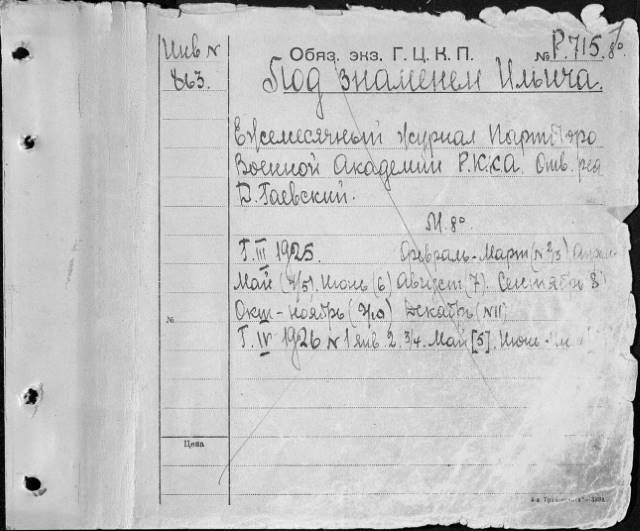 Инв N
863.
Обяз. экз. Г. Ц. К. П. № Р.715. 8°
Под знаменем Ильича.
Ежемесячный журнал Парт
Военной Академии Р.К.К.А. Отв. ред
Д. Гаевский.
М. 8°
Г. III 1925. Февраль-Март (N 2/3) Апрель
Май (4/5). Июнь (6) Август (7). Сентябрь 8
Окт-ноябрь (9/10) Декабрь (N 11)
Г. IV 1926 N 1 янв. 2. 3/4. Май [5]. Июнь-
№
Цена